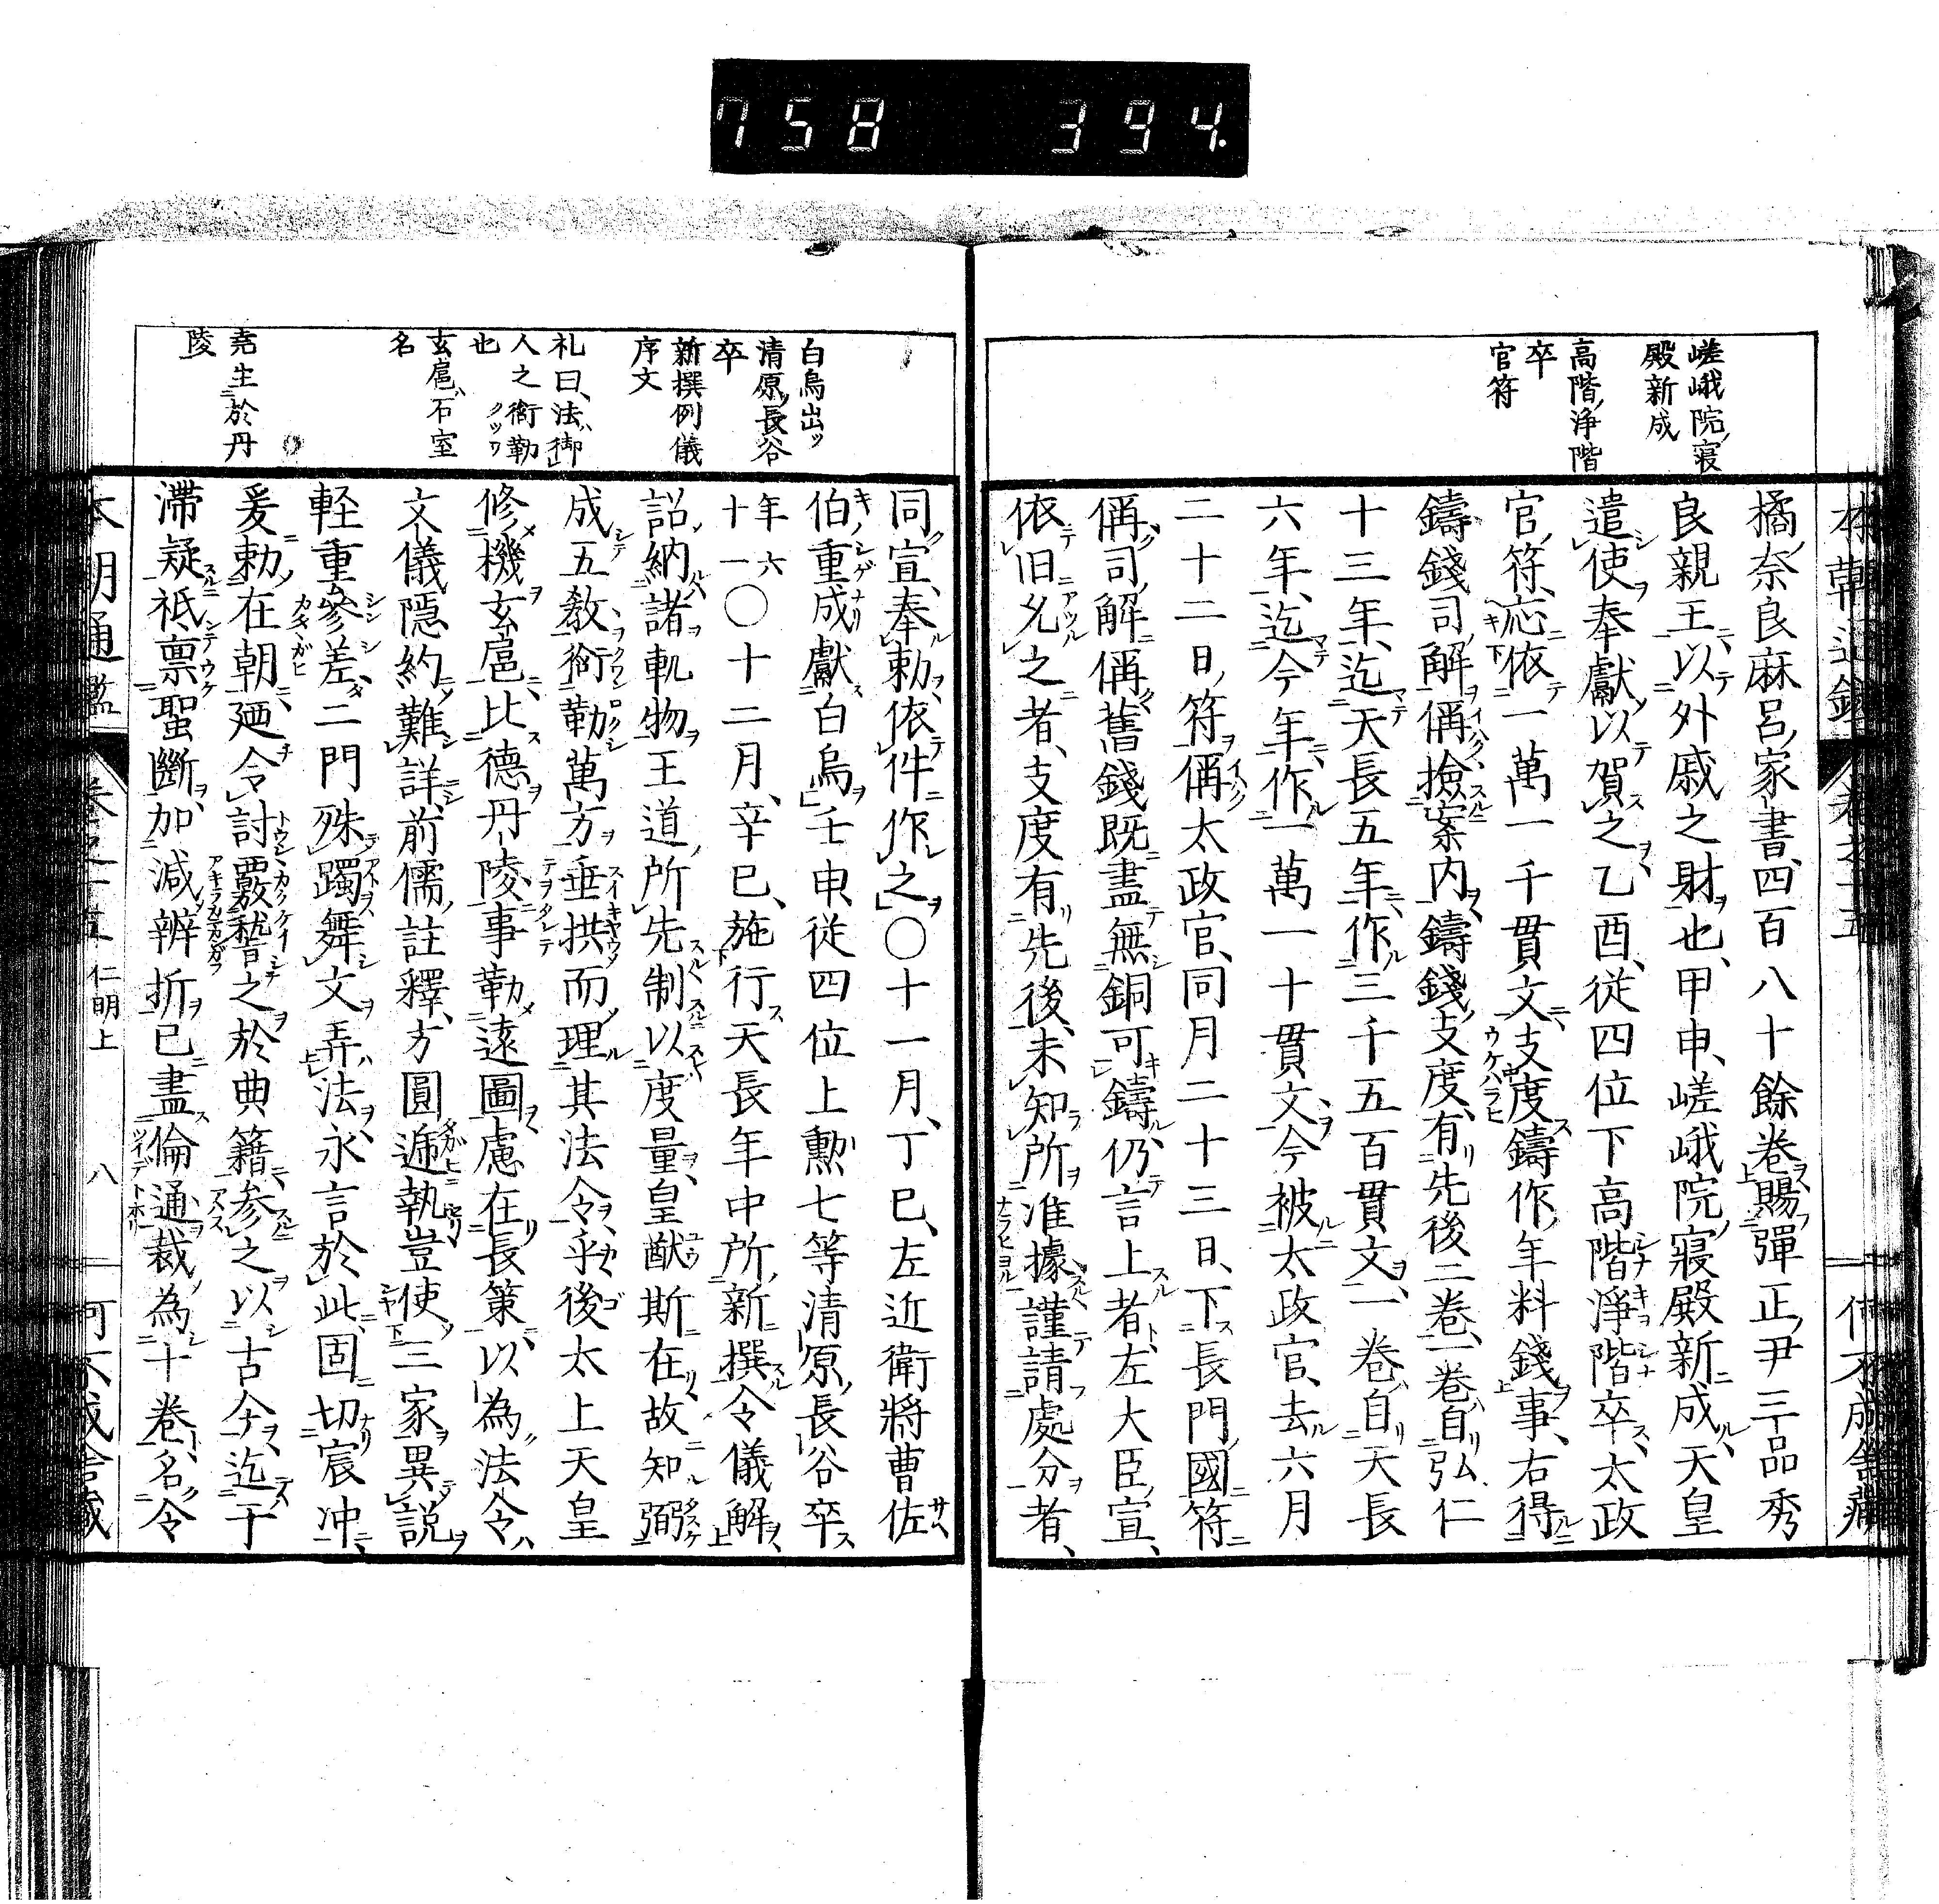 758 394.
嵯峨院寝
殿新成
高階浄階
卒
官符
橘奈良麻呂家書四百八十餘卷賜彈正尹三品秀
良親王以外戚之財也甲申嵯峨院寝殿新成天皇
遣使奉獻以賀之乙酉従四位下高階淨階卒太政
官符応依一萬一千貫文支度鑄作年料錢事右得
鑄錢司解偁撿案内鑄錢支度有先後二卷一卷自弘仁
十三年迄天長五年作三千五百貫文一卷自天長
六年迄今年作一萬一十貫文今被太政官去六月
二十二日符偁太政官同月二十三日下長門國符
偁司解偁舊錢既盡無銅可鑄仍言上者左大臣宣
依旧充之者支度有先後未知所准據謹請處分者
白烏出
清原長谷
卒
新撰例儀
序文
礼曰法御
人之銜勒
也
玄扈石室
名
堯生於丹
陵
同宣奉勅依件作之〇十一月丁巳左近衛將曹佐
伯重成獻白烏壬申従四位上勲七等清原長谷卒
年六十一〇十二月辛巳施行天長年中所新撰令儀解
詔納諸軌物王道所先制以度量皇猷斯在故知彌
成五教銜勒萬方垂拱而理其法令乎後太上天皇
修機玄扈比德丹陵事勒遠圖慮在長策以為法令
文儀隠約難詳前儒註釋方圓逓執豈使三家異説
軽重參差二門殊躅舞文弄法永言於此固切宸冲
爰勅在朝廼令討覈稽之於典籍参之以古今迄于
滞疑祗禀聖斷加減辨折已盡倫通裁為十卷名令
本朝通鑑
仁明上
八